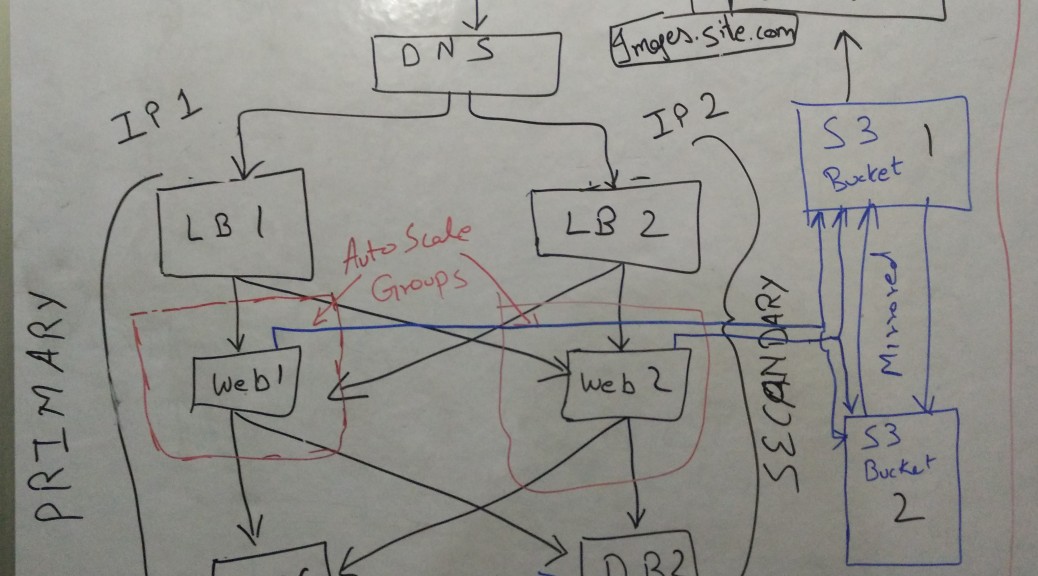 DNS
Images.site.com
IP1
IP2
S3 1
Bucket
LB 1
LB 2
Auto Scale
Groups
PRIMARY
SECANDARY
Mirrored
Web1
Web2
S3
Bucket
2
DB2